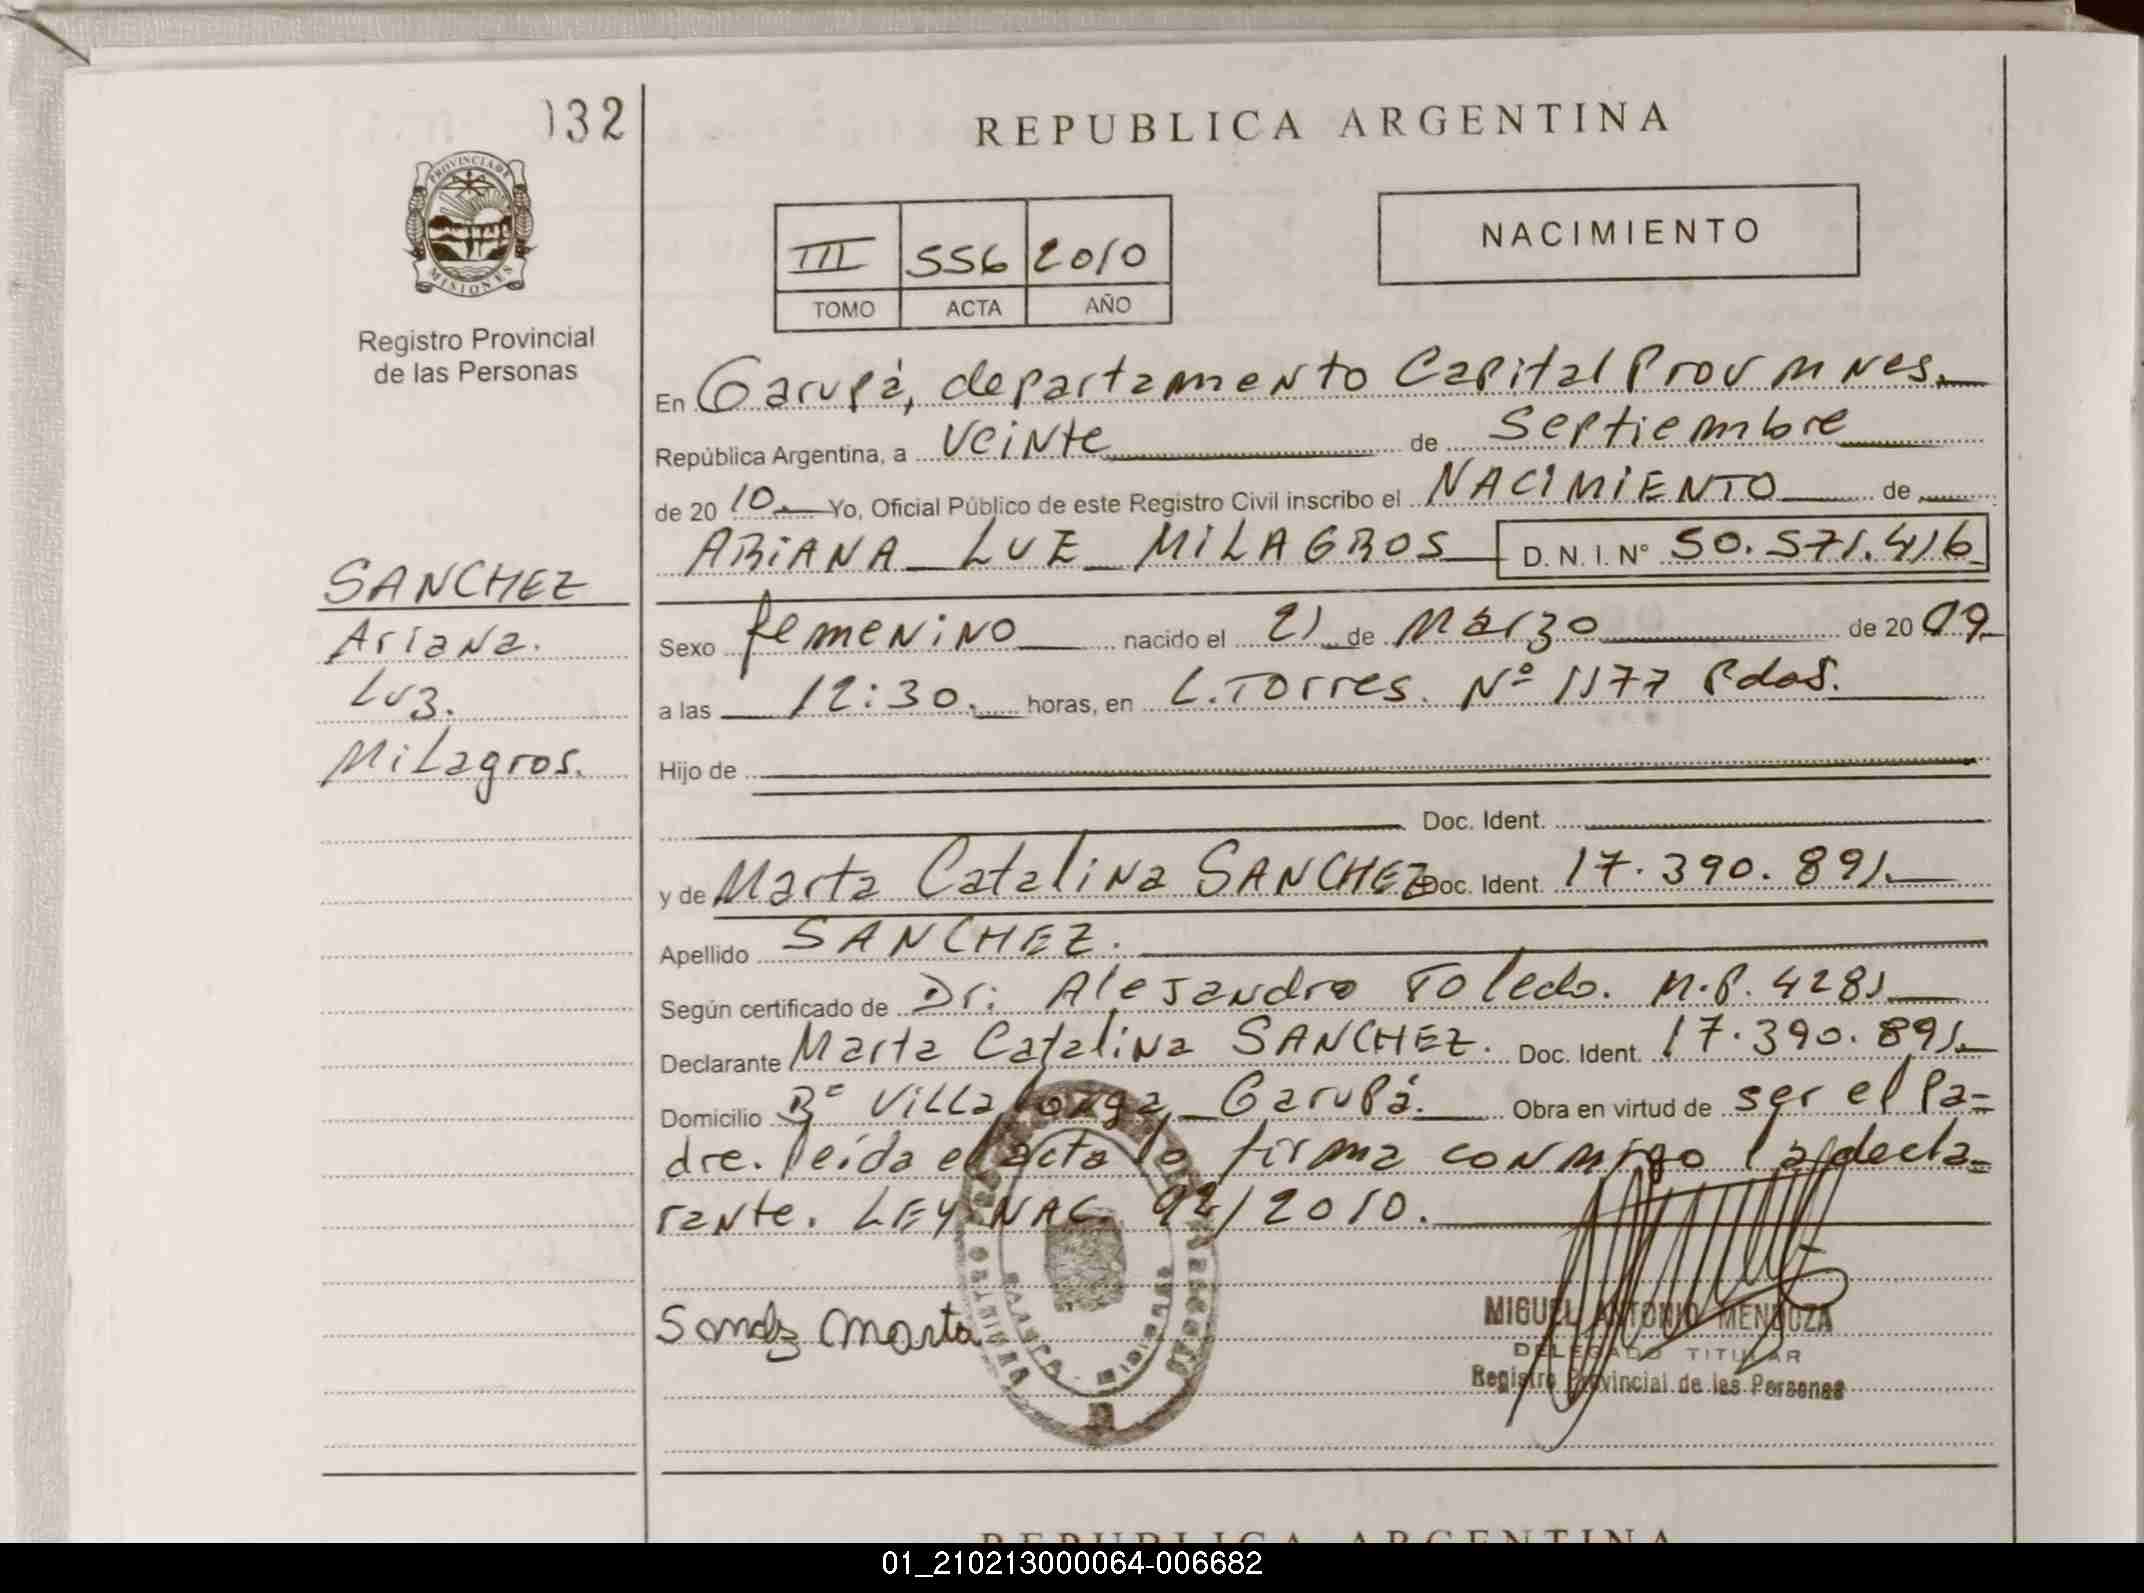 132
REPUBLICA ARGENTINA
PROVINCIA DE
MISIONES
Registro Provincial
de las Personas
III 556 2010
TOMO ACTA AÑO
NACIMIENTO
En Garupá, departamento Capital Prov Mnes.
República Argentina, a Veinte de Septiembre
de 20 10. Yo, Oficial Público de este Registro Civil inscribo el NACIMIENTO de
ARIANA LUZ MILAGROS D. N. I. N° 50.571.416
SANCHEZ
Ariana.
Luz.
Milagros.
Sexo femenino nacido el 21 de Marzo de 20 09
a las 12:30. horas, en L. Torres. Nº 1177 Pdas.
Hijo de
Doc. Ident.
y de Marta Catalina SANCHEZ Doc. Ident. 17.390.891.
Apellido SANCHEZ.
Según certificado de Dr. Alejandro Toledo. M.P. 4281
Declarante Marta Catalina SANCHEZ. Doc. Ident. 17.390.891.
Domicilio Bº Villa Longa, Garupá. Obra en virtud de ser el Pa=
dre. leída el acta la firma conmigo la decla-
rante. LEY NAC. 92/2010.
Marta
MIGUEL ANTONIO MENDOZA
DELEGADO TITULAR
Registro Provincial de las Personas
REPUBLICA ARGENTINA
01_210213000064-006682